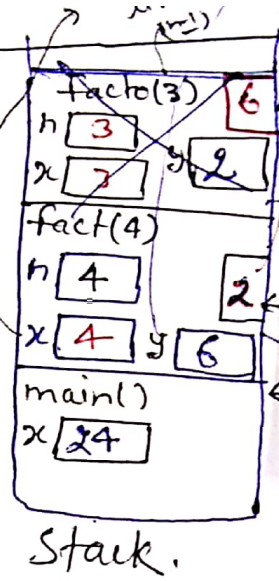 (n-1)
facto(3)
6
n 3
y 2
x 3
fact(4)
n 4
2
x 4 y 6
main()
x 24
Stack.